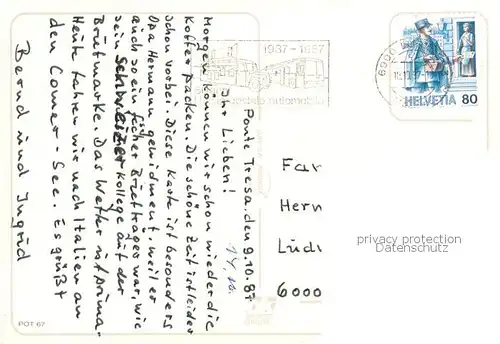 Ponte Tresa, den 9.10.87
Ihr Lieben!
Morgen können wir schon wieder die
Koffer packen. Die schöne Zeit ist leider
schon vorbei. Diese Karte ist besonders
Opa Hermann gewidmet, weil er
auch so ein Briefträger war, wie
sein Schweizer Kollege auf der
Briefmarke. Das Wetter ist prima.
Heute fahren wir nach Italien an
den Comer-See. Es grüßt
Bernd und Ingrid
POT 67
1937-1987
HELVETIA 80
Fam
Herm
Ludw
6000
privacy protection
Datenschutz